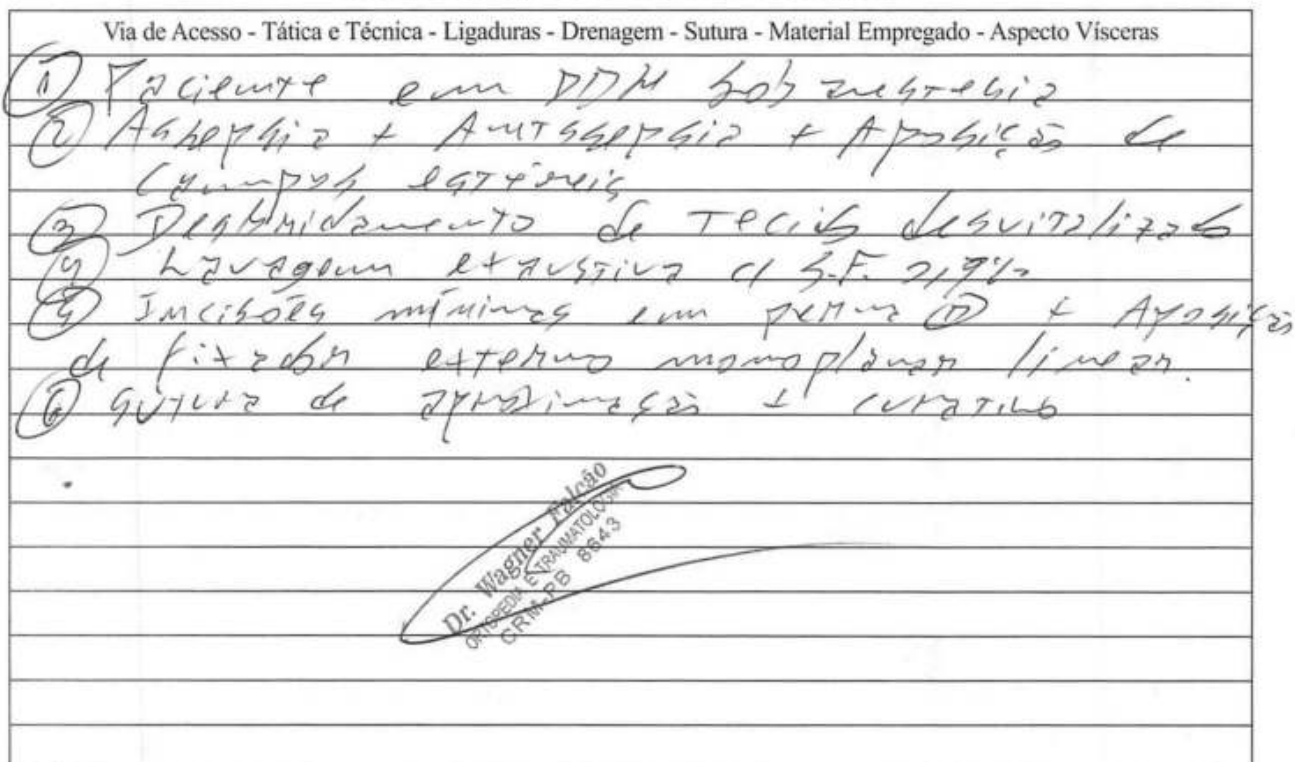 Via de Acesso - Tática e Técnica - Ligaduras - Drenagem - Sutura - Material Empregado - Aspecto Vísceras
① Paciente em DDH sob anestesia
② Assepsia + Antissepsia + Aposição de
Campos estéreis
③ Desbridamento de tecido desvitalizado
④ Lavagem exaustiva c/ S.F. 0,9%
⑤ Incisões mínimas em perna Ⓓ + Aposição
de fixador externo monoplanar linear.
⑥ Sutura de aproximação + curativo
Dr. Wagner Falcão
ORTOPEDIA E TRAUMATOLOGIA
CRM-PB 8643